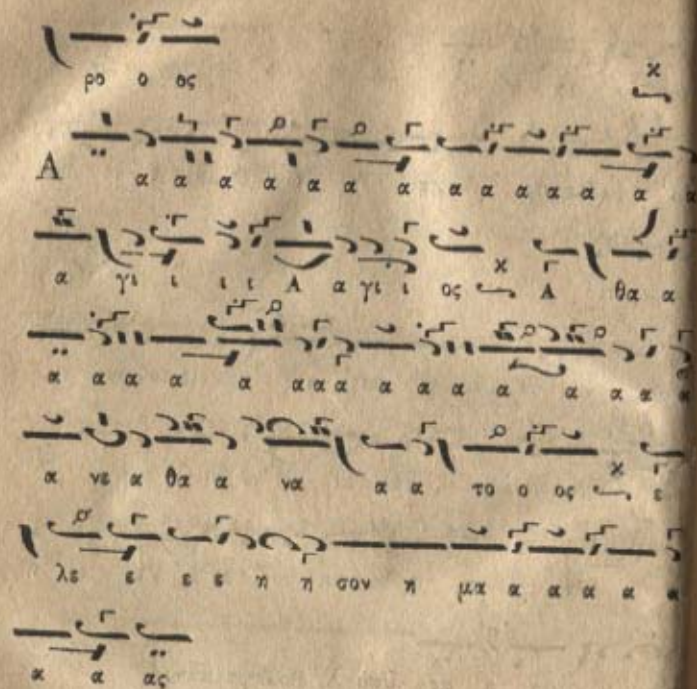 ρο ο ος
Α α α α α α α α α α α α α α α
α γι ι ι ι Α α γι ι ος Α θα α
α α α α α α α α α α α α α α α α
α νε α θα α να α α το ο ος ε
λε ε ε ε η η σον η μα α α α α α
α α ας